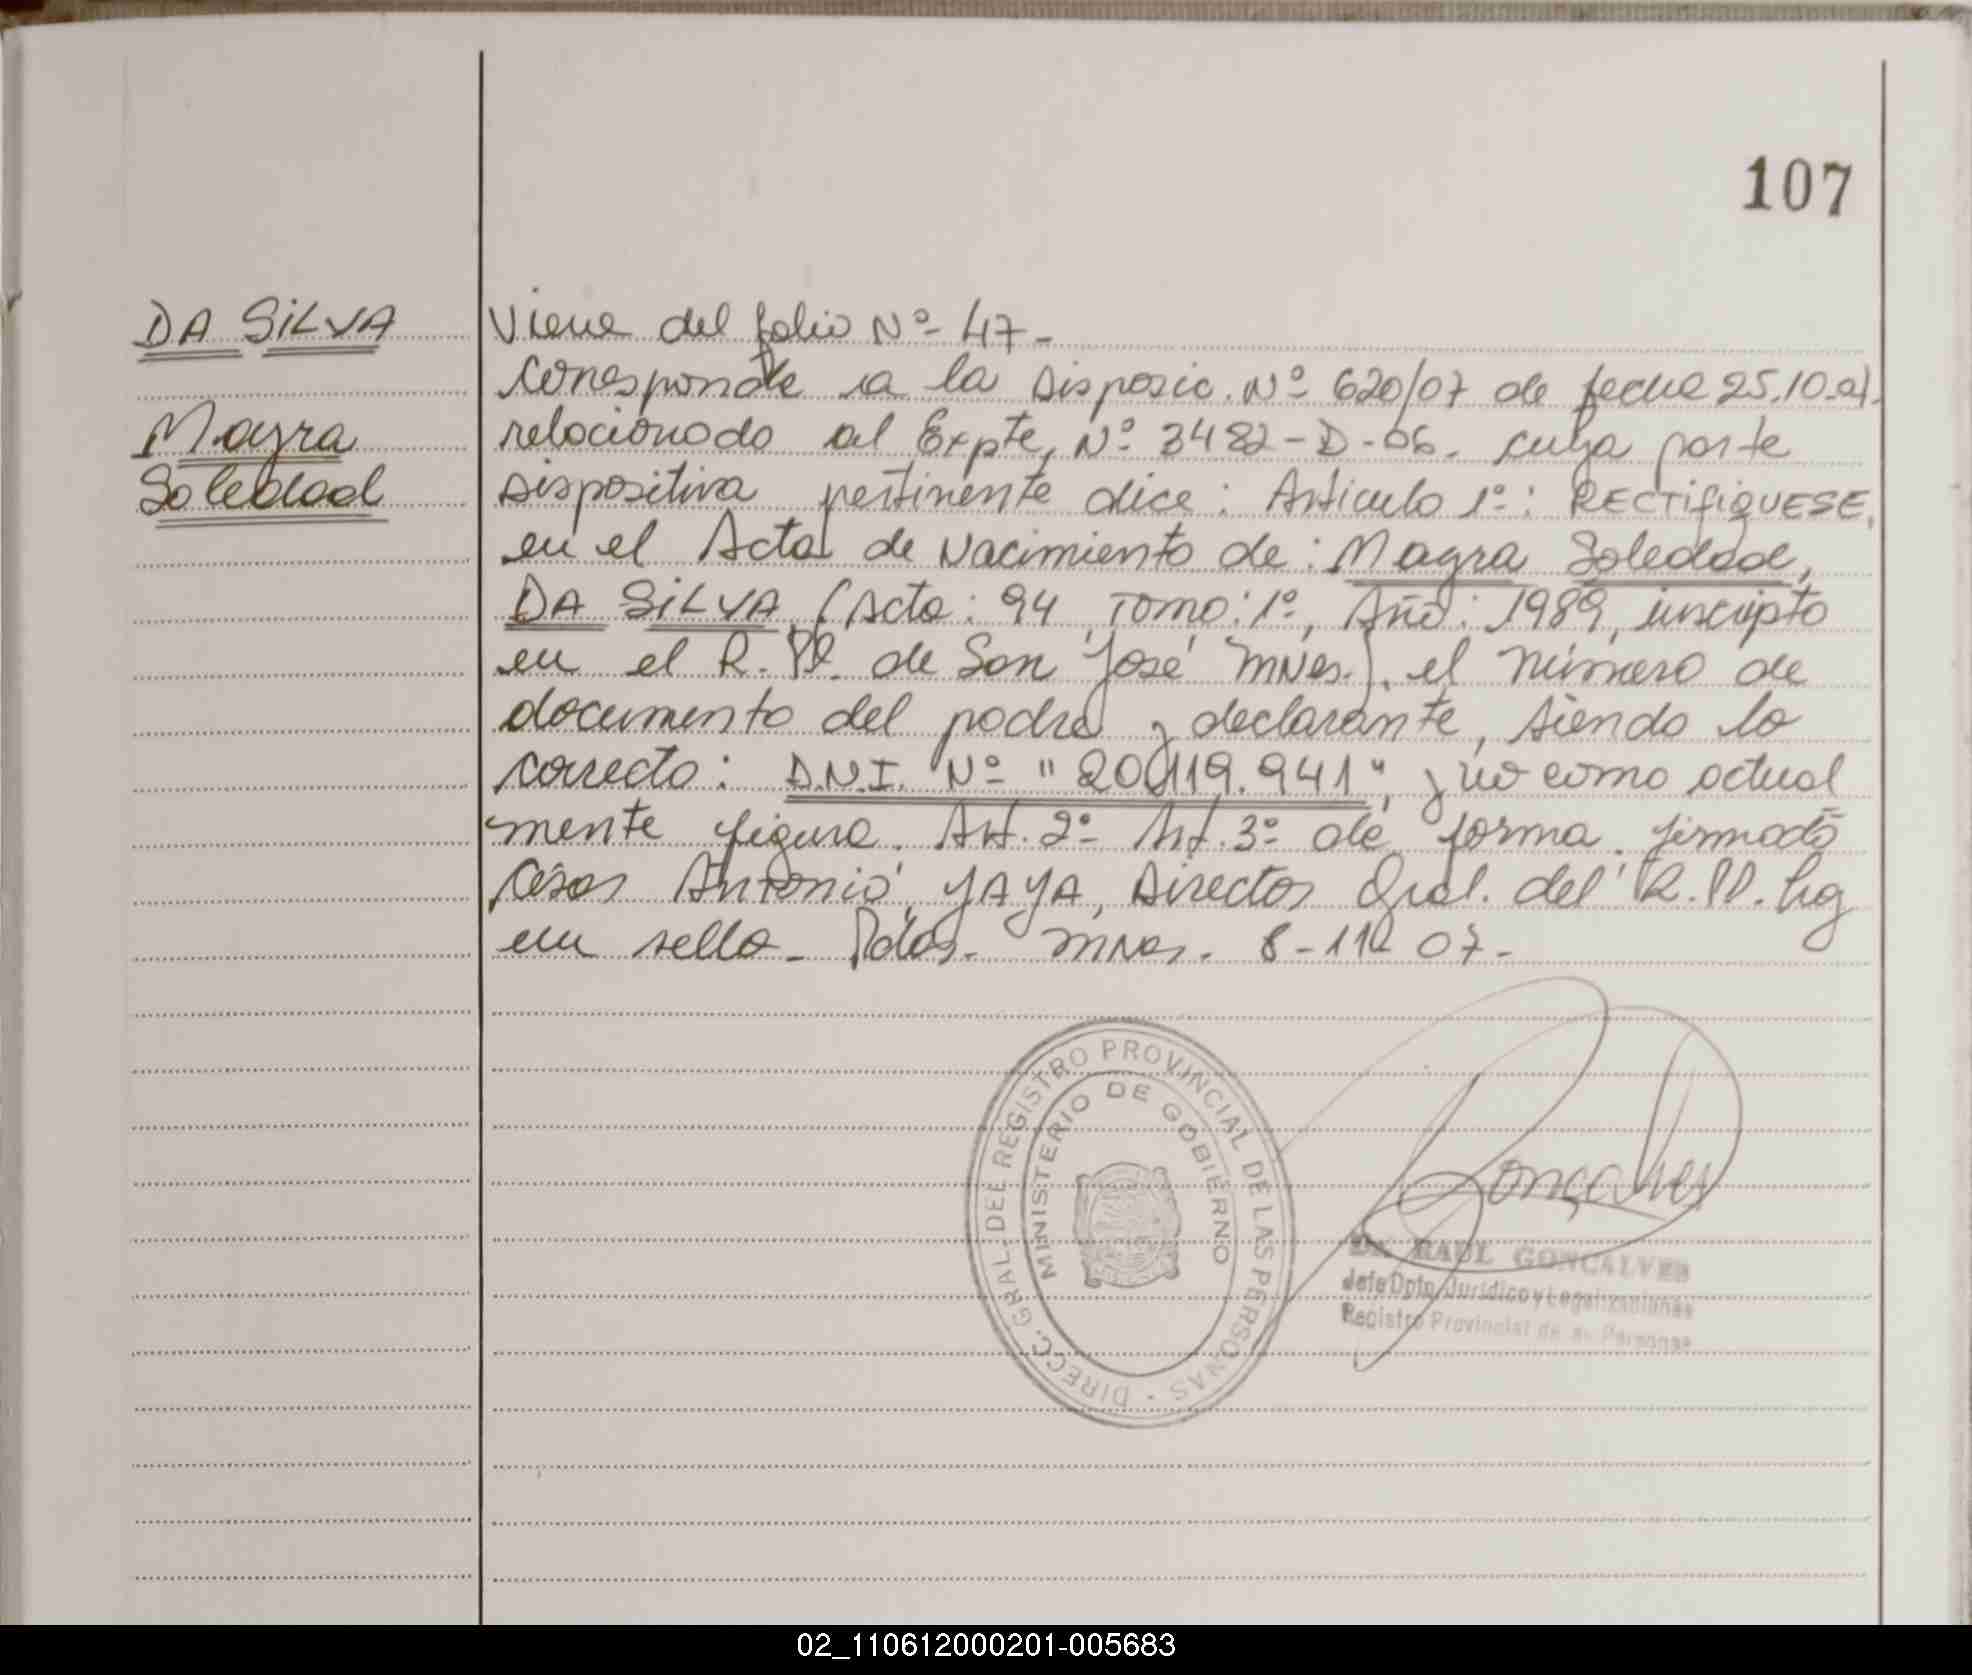 107
DA SILVA
Mayra
Soledad
Viene del folio Nº- 47-
Corresponde a la Disposic. Nº 620/07 de fecha 25.10.07.
relacionado al Expte, Nº 3482-D-06. cuya parte
Dispositiva pertinente dice: Articulo 1º: RECTIFIQUESE,
en el Acta de Nacimiento de: Mayra Soledad,
DA SILVA, (Acta: 94, Tomo: 1º, Año: 1989, inscripto
en el R.PP. de San José Mnes.), el número de
documento del padre y declarante, siendo lo
correcto: D.N.I. Nº "20.119.941", y no como actual
mente figura. Art. 2º Art. 3º de forma. firmado
César Antonio YAYA, Director Gral. del R.PP. hay
un sello- Pdas. Mnes. 8-11-07-
DIRECC. GRAL. DEL REGISTRO PROVINCIAL DE LAS PERSONAS
MINISTERIO DE GOBIERNO
Gonçalves
Dr. RAUL GONCALVES
Jefe Dpto. Jurídico y Legalizaciones
Registro Provincial de las Personas
02_110612000201-005683